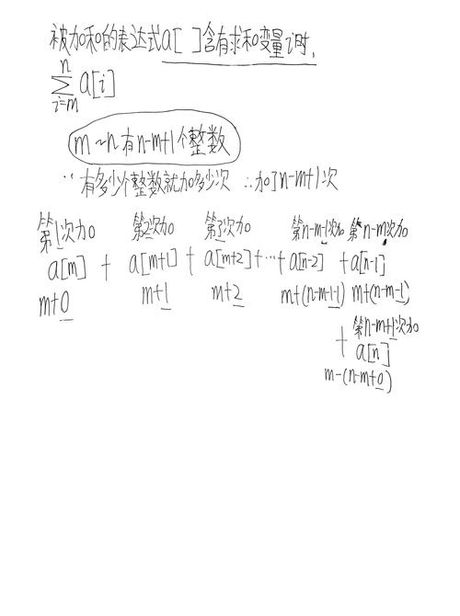 被加和的表达式a[ ]含有求和变量i时,
n
∑ a[i]
i=m
m~n有n-m+1个整数
∵有多少个整数就加多少次 ∴加了n-m+1次
第1次加 第2次加 第3次加 第n-m-1次加 第n-m次加
a[m] + a[m+1] + a[m+2] + ··· + a[n-2] + a[n-1]
m+0 m+1 m+2 m+(n-m-1-1) m+(n-m-1)
第n-m+1次加
+ a[n]
m-(n-m+0)